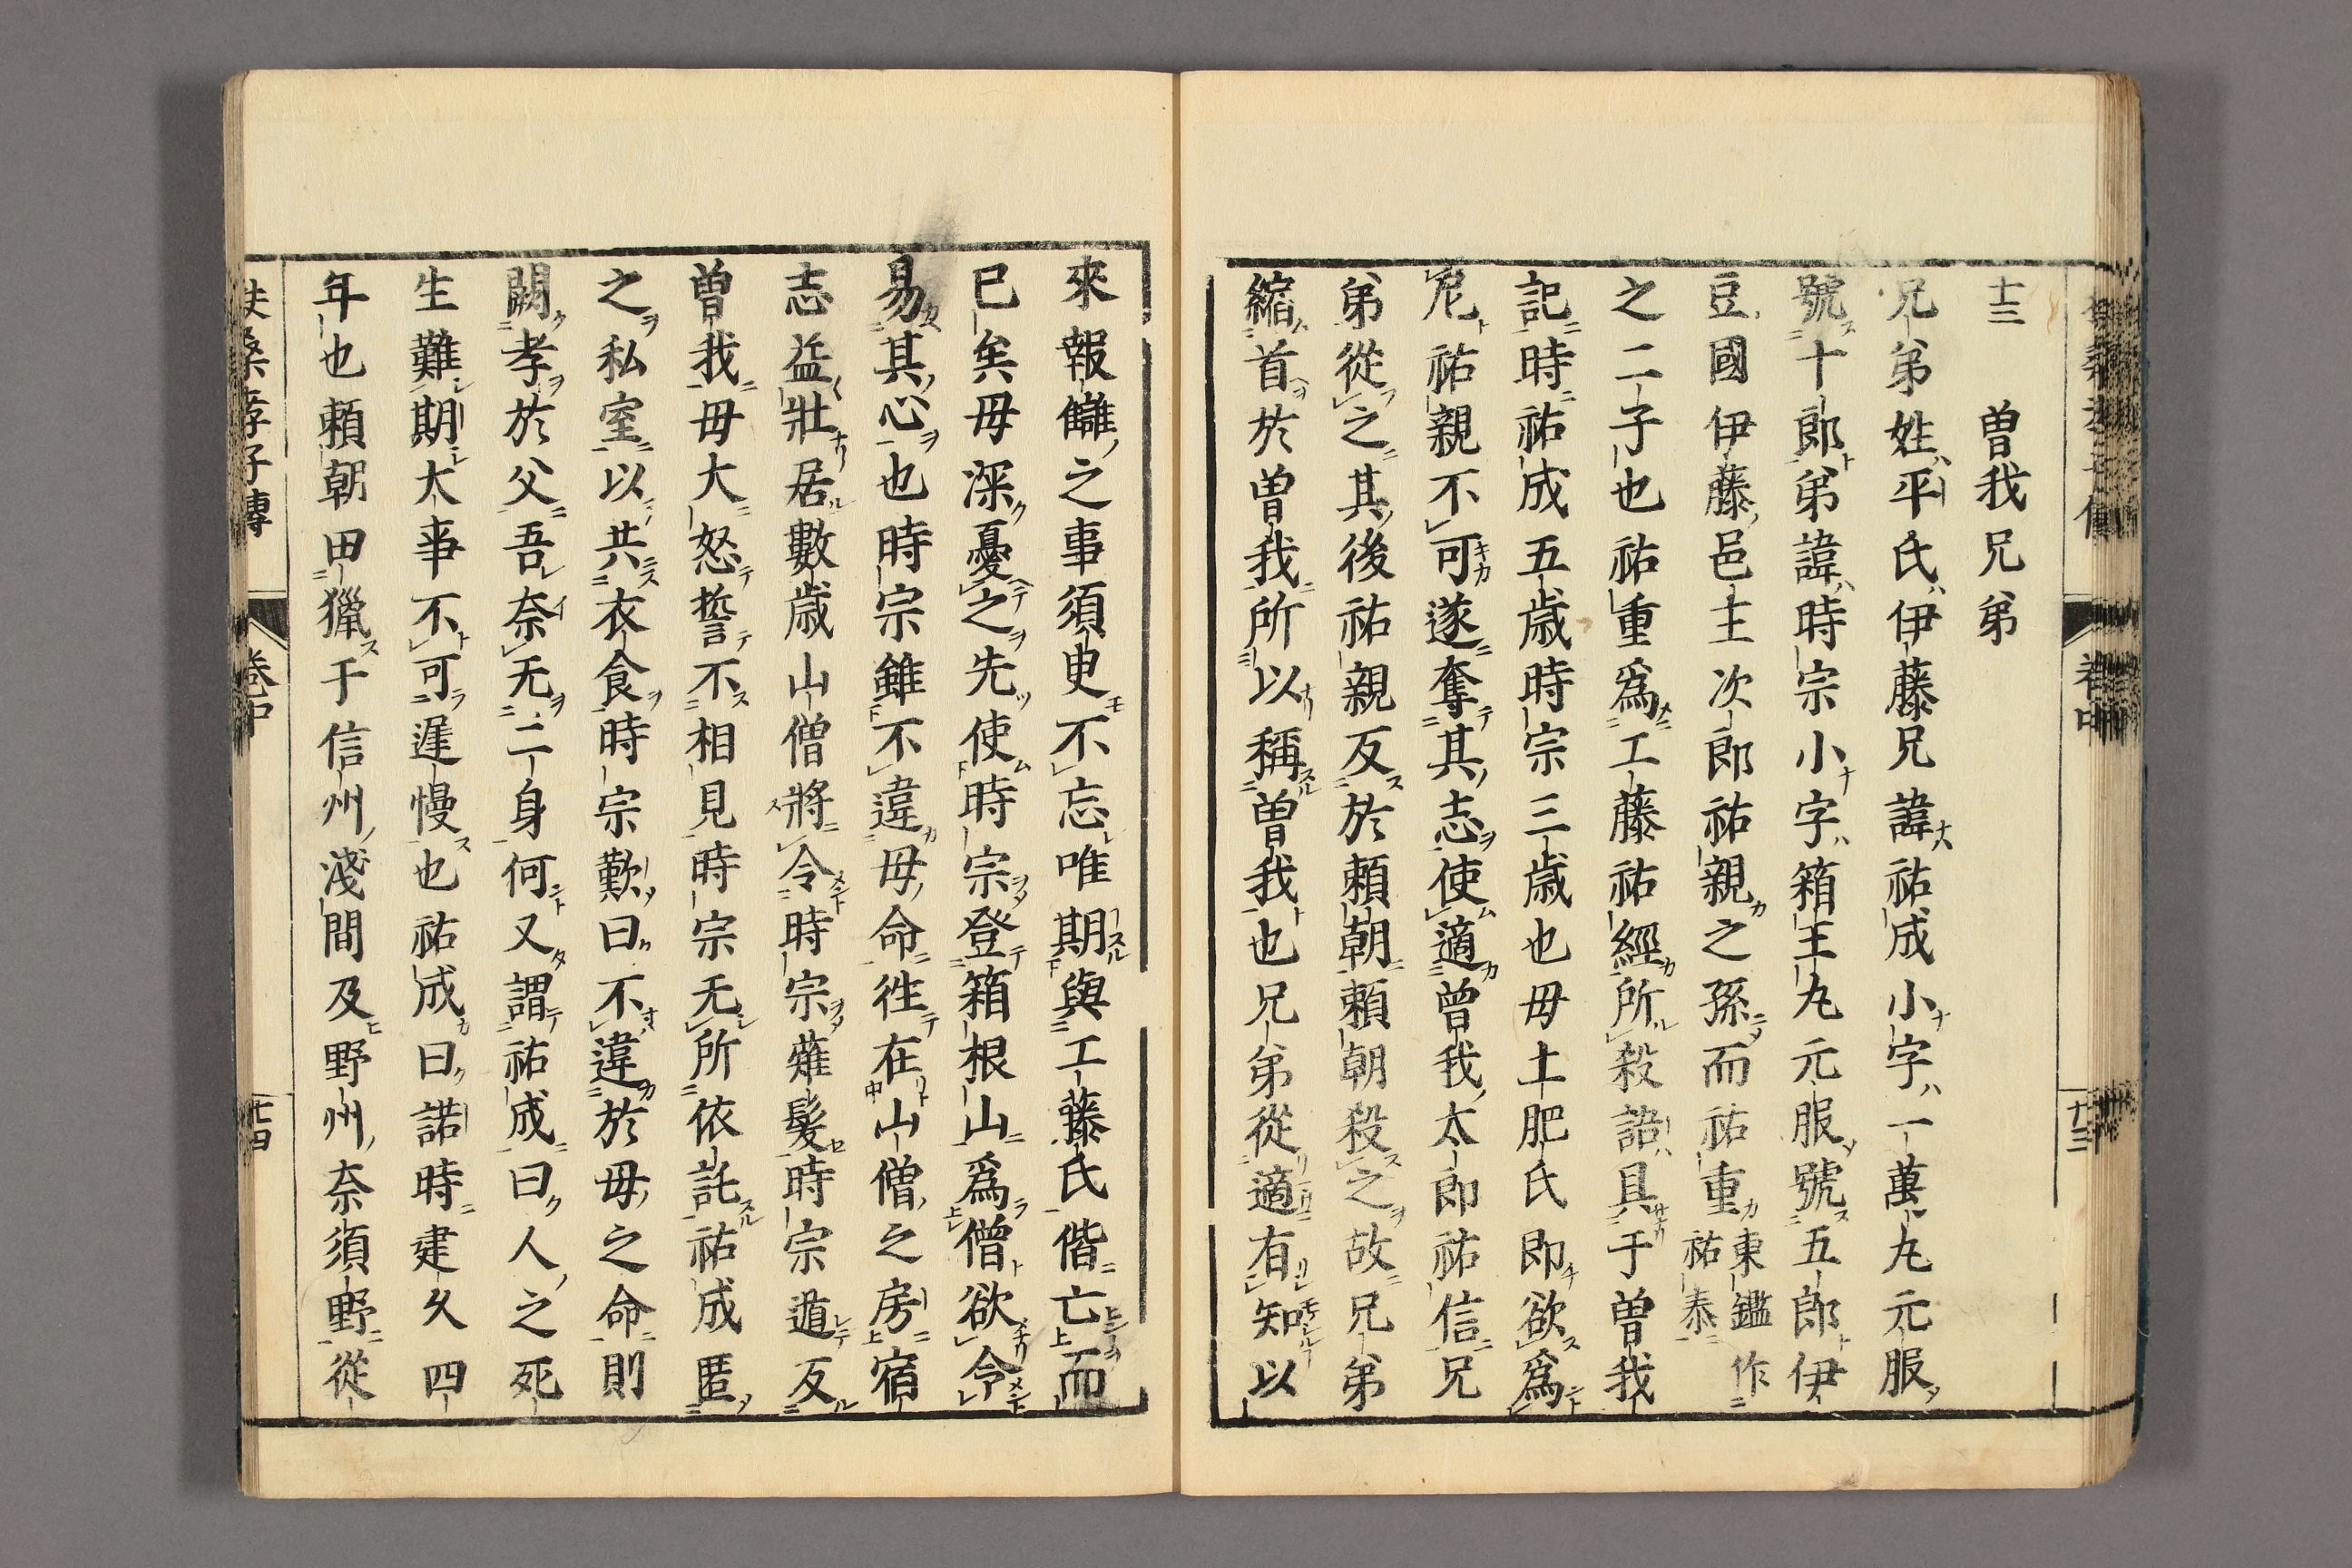 十三
曽我兄弟
兄弟姓平氏伊藤兄諱祐成小字一萬九元服
號十郎弟諱時宗小字箱王九元服號五郎伊
豆國伊藤邑主次郎祐親之孫而祐重東鑑作祐泰
之二子也祐重爲工藤祐經所殺語具于曽我
記時祐成五歳時宗三歳也母土肥氏即欲爲
尼祐親不可遂奪其志使適曽我太郎祐信兄
弟從之其後祐親反於頼朝頼朝殺之故兄弟
縮首於曽我所以稱曽我也兄弟從適有知以
來報讎之事須臾不忘唯期與工藤氏偕亡而
已矣母深憂之先使時宗登箱根山爲僧欲令
易其心也時宗雖不違母命徃在山僧之房宿
志益壯居數歳山僧將令時宗薙髪時宗遁反
曽我母大怒誓不相見時宗无所依託祐成匿
之私室以共衣食時宗歎曰不違於母之命則
闕孝於父吾奈无二身何又謂祐成曰人之死
生難期大事不可遲慢也祐成曰諾時建久四
年也頼朝田獵于信州淺間及野州奈須野從
扶桑孝子傳
巻中
十四